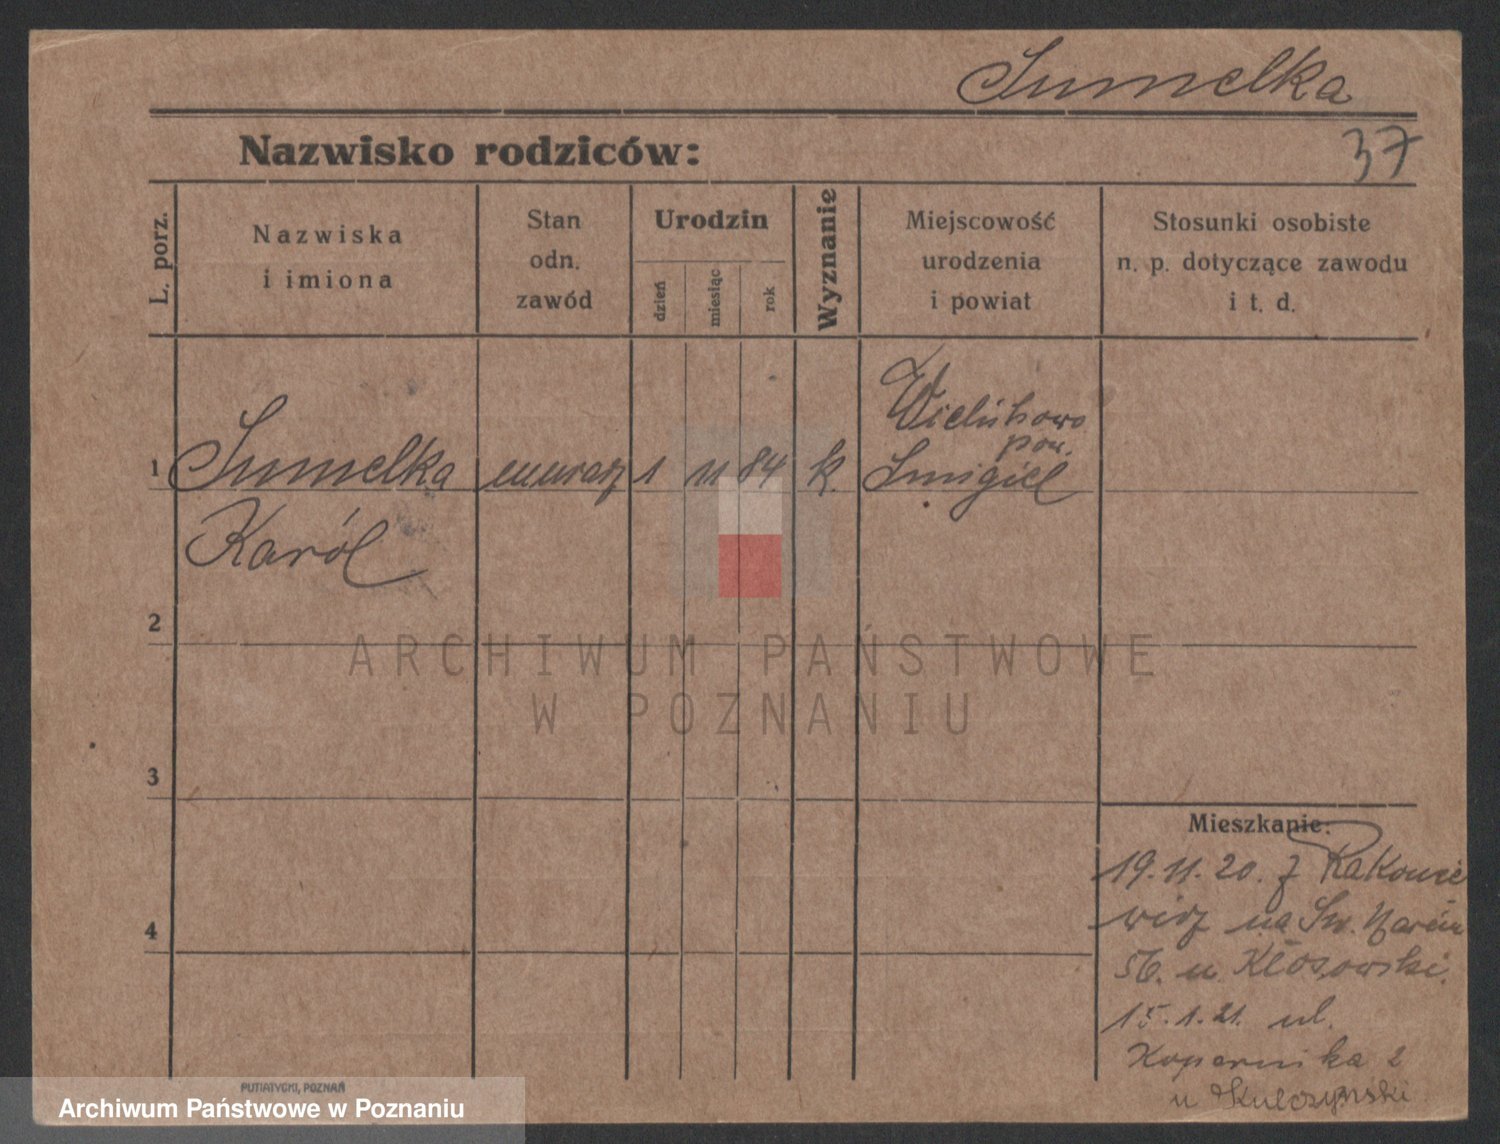 Sumelka
37
Nazwisko rodziców:
L. porz.
Nazwiska
i imiona
Stan
odn.
zawód
Urodzin
dzień
miesiąc
rok
Wyznanie
Miejscowość
urodzenia
i powiat
Stosunki osobiste
n. p. dotyczące zawodu
i t. d.
1 Sumelka murarz 1 11 84 k. Wielichowo
pow.
Smigiel
Karól
2
3
4
Mieszkanie:
19.11.20. z Rakonie
wicz na Św. Marcin
56. u Kłosowski.
15.1.21. ul.
Kopernika 2
u Kulczynski
PUTIATYCKI, POZNAŃ
ARCHIWUM PAŃSTWOWE
W POZNANIU
Archiwum Państwowe w Poznaniu